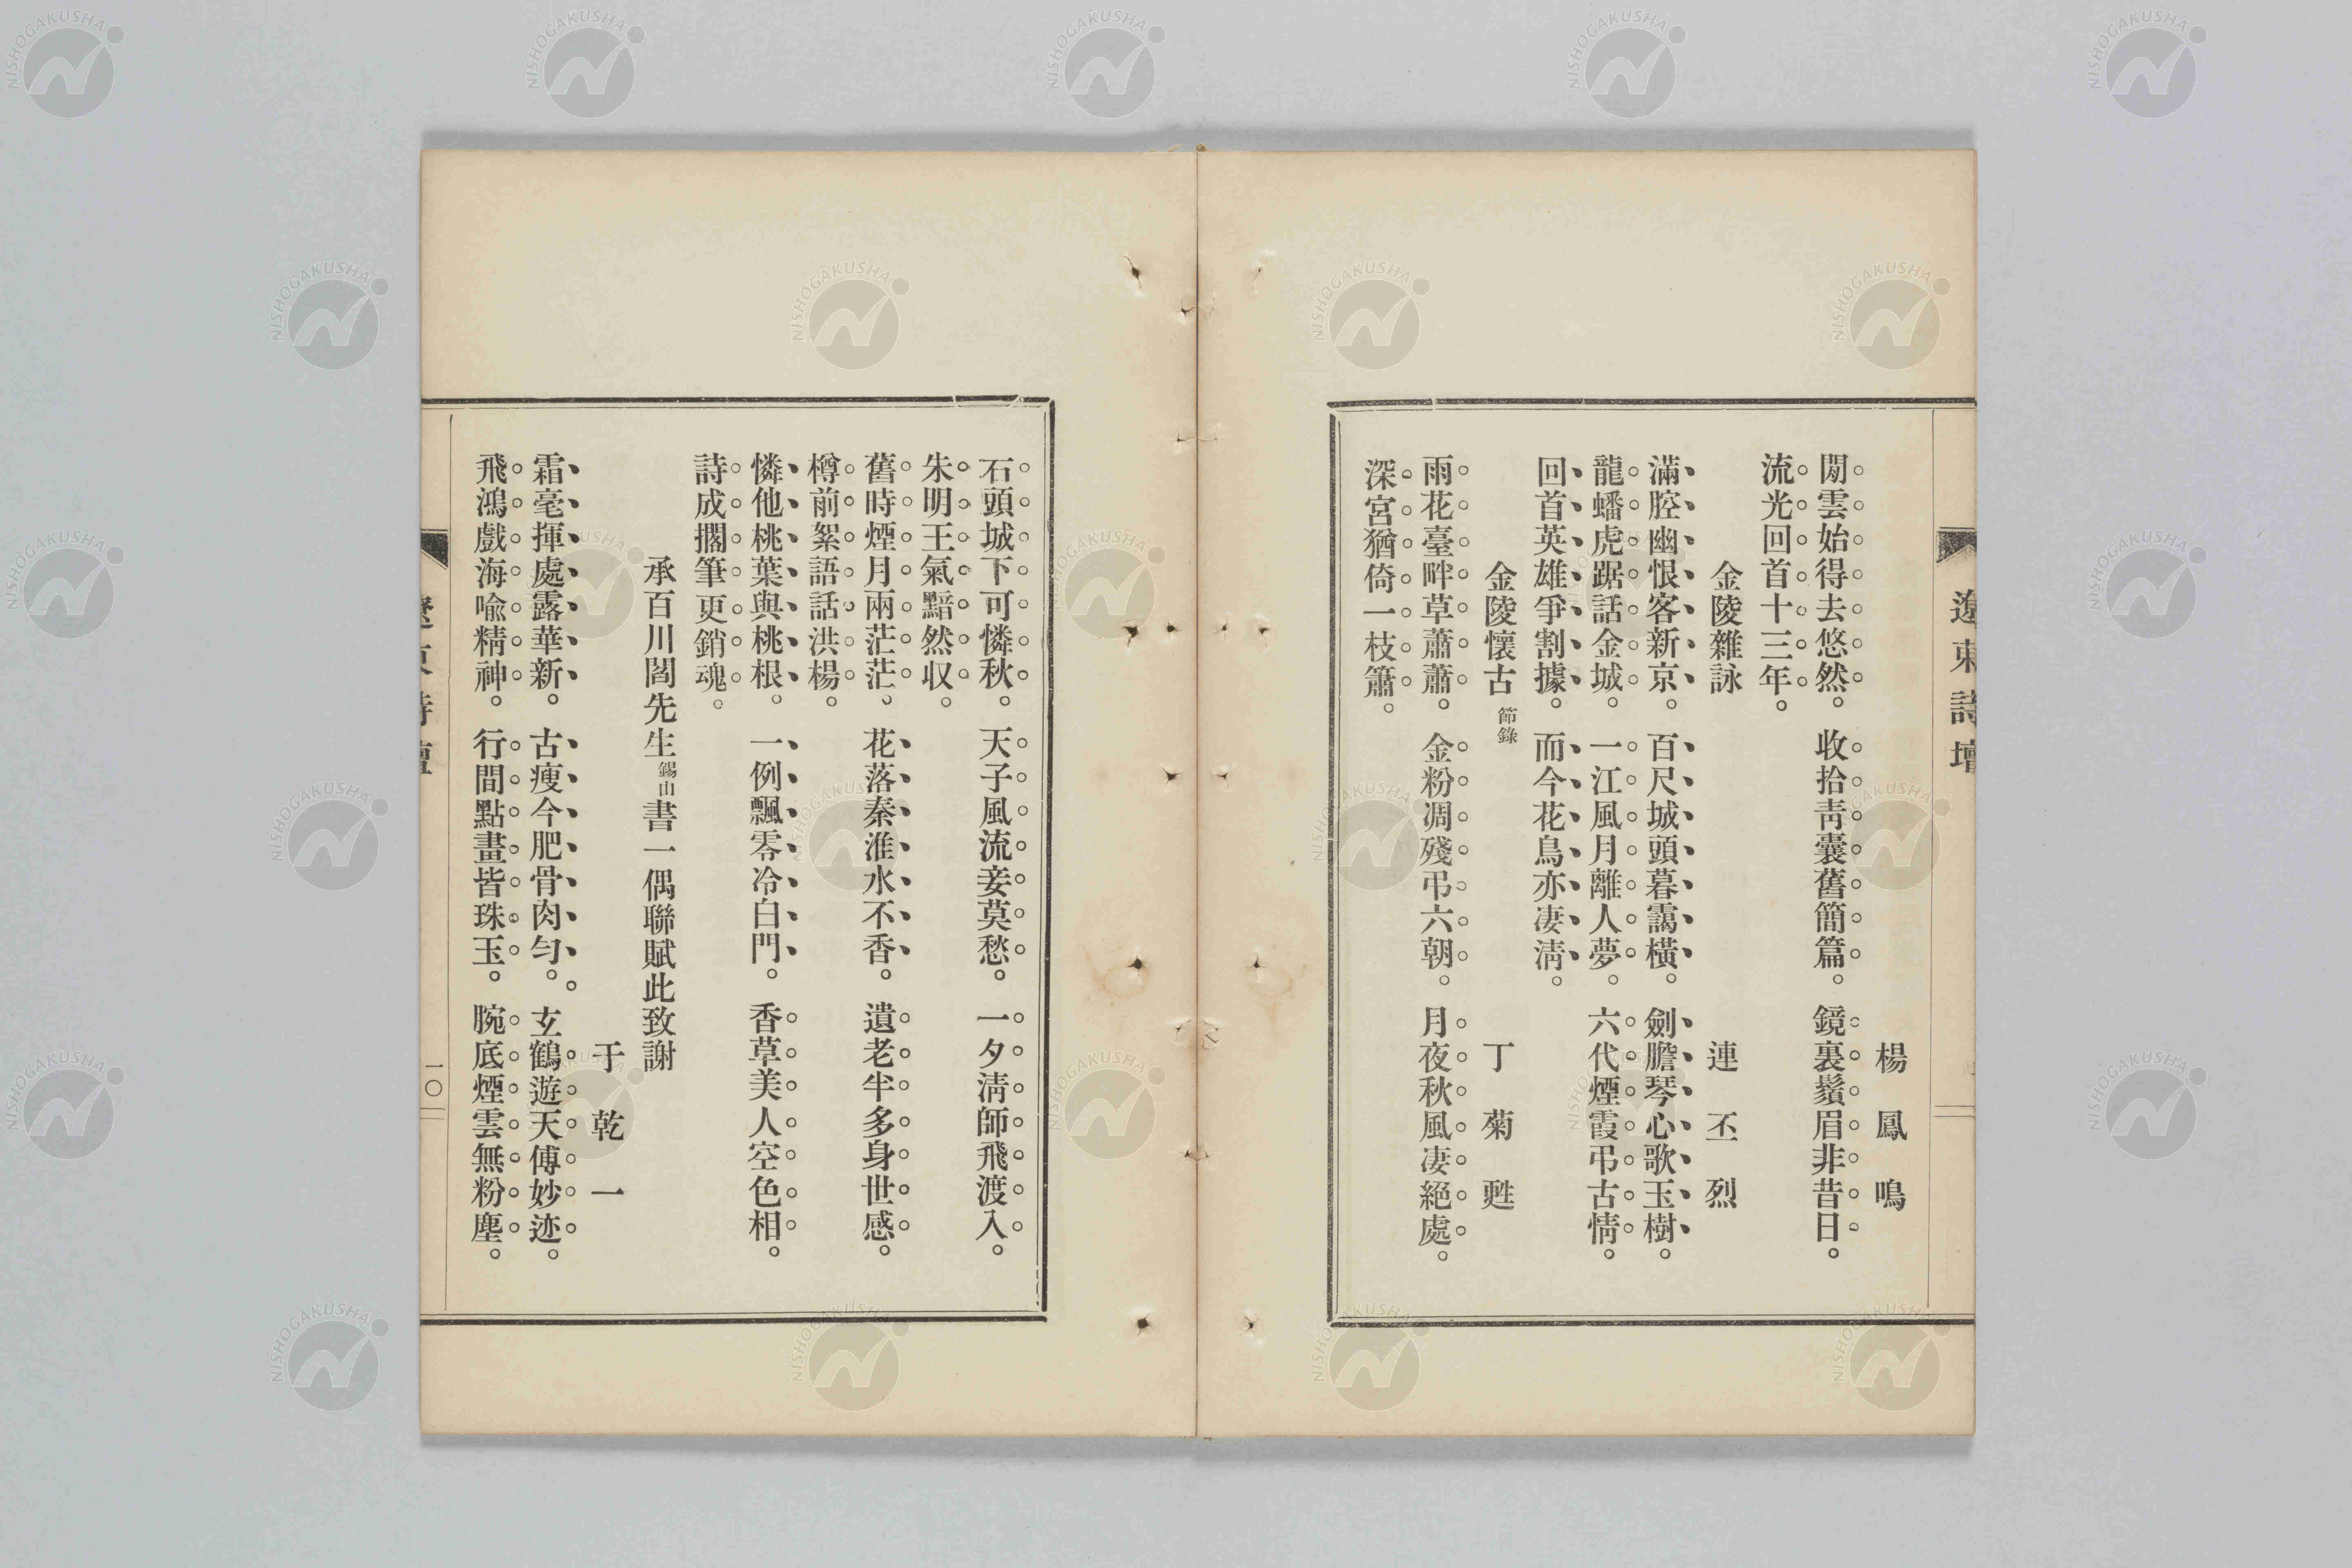 遼東詩壇
楊鳳鳴
閒雲始得去悠然。收拾靑囊舊簡篇。鏡裏鬚眉非昔日。
流光回首十三年。
金陵雜詠 連丕烈
滿腔幽恨客新京。百尺城頭暮靄橫。劍膽琴心歌玉樹。
龍蟠虎踞話金城。一江風月離人夢。六代煙霞弔古情。
回首英雄爭割據。而今花鳥亦凄淸。
金陵懷古 節錄 丁菊甦
雨花臺畔草蕭蕭。金粉凋殘弔六朝。月夜秋風凄絕處。
深宮猶倚一枝簫。
石頭城下可憐秋。天子風流妾莫愁。一夕淸師飛渡入。
朱明王氣黯然収。
舊時煙月兩茫茫。花落秦淮水不香。遺老半多身世感。
樽前絮語話洪楊。
憐他桃葉與桃根。一例飄零冷白門。香草美人空色相。
詩成擱筆更銷魂。
承百川閻先生錫山書一偶聯賦此致謝
于乾一
霜毫揮處露華新。古瘦今肥骨肉勻。玄鶴遊天傳妙迹。
飛鴻戲海喩精神。行間點畫皆珠玉。腕底煙雲無粉塵。
一〇
NISHOGAKUSHA